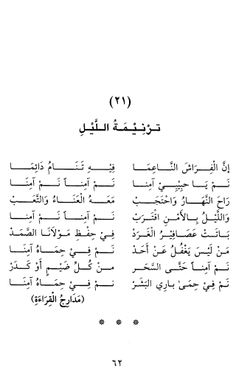 (٢١)
تَرْنِيْمَةُ اللَّيْلِ
إِنَّ الْفِرَاشَ النَّاعِمَا فِيْهِ تَنَامُ دَائِمَا
نَمْ يَا حَبِيْبِيْ آمِنَا نَمْ آمِناً نَمْ آمِنَا
رَاحَ النَّهَارُ وَاحْتَجَبْ مَعَهُ الْعَنَاءُ وَالتَّعَبْ
وَاللَّيْلُ بِالأَمْنِ اقْتَرَبْ نَمْ آمِناً نَمْ آمِنَا
بَاتَتْ عَصَافِيْرُ الْغَرَدْ فِيْ حِفْظِ مَوْلاَنَا الصَّمَدْ
مَنْ لَيْسَ يَغْفُلُ عَنْ أَحَدْ نَمْ فِيْ حِمَاهُ آمِنَا
نَمْ آمِناً حَتَّى السَّحَرْ مِنْ كُلِّ ضَيْمٍ أَوْ كَدَرْ
نَمْ فِيْ حِمَى بَارِي الْبَشَرْ نَمْ فِيْ حِمَاهُ آمِنَا
(مَدَارِجُ الْقِرَاءَةِ)
* * *
٦٢